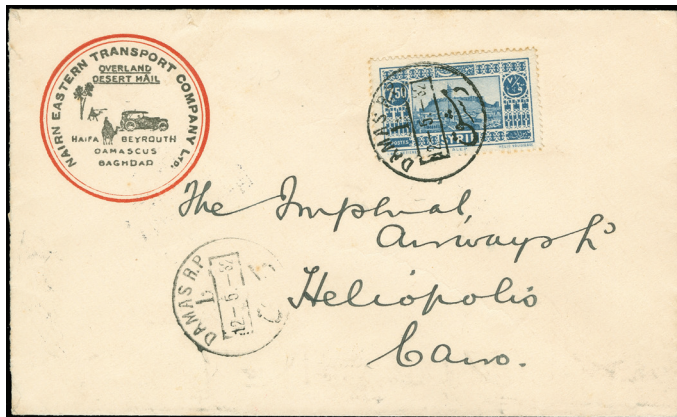 NAIRN EASTERN TRANSPORT COMPANY LTD.
OVERLAND
DESERT MAIL
HAIFA BEYROUTH
DAMASCUS
BAGHDAD
7,50
POSTES
DAMAS R.P
12-5
The Imperial
Airways Ld
Heliopolis
Cairo.
DAMAS R.P
1
12-5